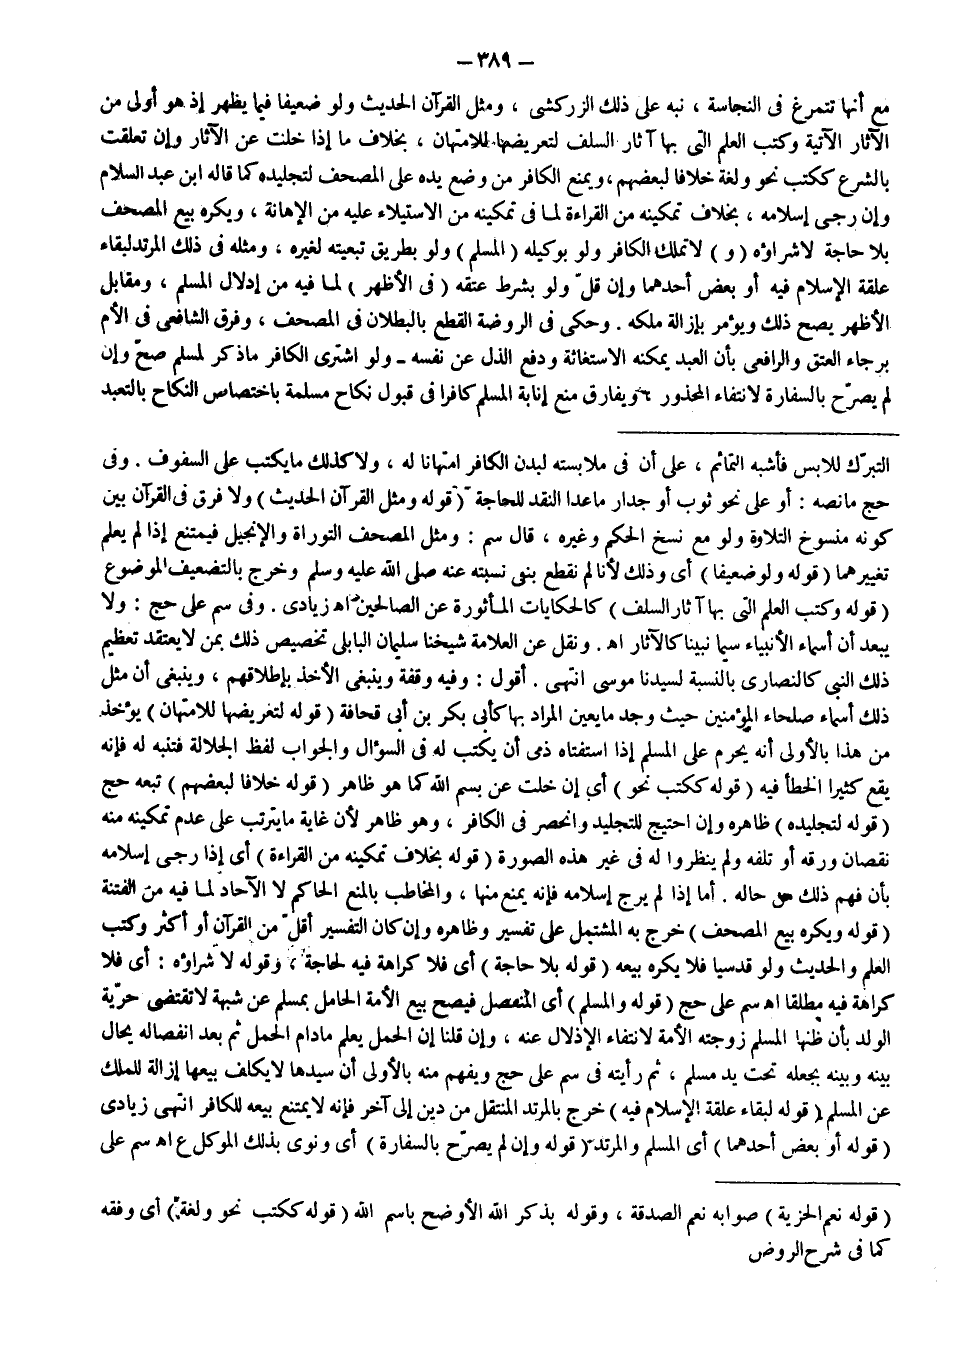 — ٣٨٩ —
مع أنها تتمرغ فى النجاسة ، نبه على ذلك الزركشى ، ومثل القرآن الحديث ولو ضعيفا فيما يظهر إذ هو أولى من
الآثار الآتية وكتب العلم التى بها آثار السلف لتعريضها للامتهان ، بخلاف ما إذا خلت عن الآثار وإن تعلقت
بالشرع ككتب نحو ولغة خلافا لبعضهم ، ويمنع الكافر من وضع يده على المصحف لتجليده كما قاله ابن عبد السلام
وإن رجى إسلامه ، بخلاف تمكينه من القراءة لما فى تمكينه من الاستيلاء عليه من الإهانة ، ويكره بيع المصحف
بلا حاجة لاشراؤه ( و ) لاتملك الكافر ولو بوكيله ( المسلم ) ولو بطريق تبعيته لغيره ، ومثله فى ذلك المرتد لبقاء
علقة الإسلام فيه أو بعض أحدهما وإن قلّ ولو بشرط عتقه ( فى الأظهر ) لما فيه من إدلال المسلم ، ومقابل
الأظهر يصح ذلك ويؤمر بإزالة ملكه . وحكى فى الروضة القطع بالبطلان فى المصحف ، وفرق الشافعى فى الأم
برجاء العتق والرافعى بأن العبد يمكنه الاستغاثة ودفع الذل عن نفسه ــ ولو اشترى الكافر ماذكر لمسلم صحّ وإن
لم يصرّح بالسفارة لانتفاء المحذور ويفارق منع إنابة المسلم كافرا فى قبول نكاح مسلمة باختصاص النكاح بالتعبد
التبرّك للابس فأشبه التمائم ، على أن فى ملابسته لبدن الكافر امتهانا له ، ولا كذلك مايكتب على السقوف . وفى
حج مانصه : أو على نحو ثوب أو جدار ماعدا النقد للحاجة ( قوله ومثل القرآن الحديث ) ولا فرق فى القرآن بين
كونه منسوخ التلاوة ولو مع نسخ الحكم وغيره ، قال سم : ومثل المصحف التوراة والإنجيل فيمتنع إذا لم يعلم
تغييرهما ( قوله ولو ضعيفا ) أى وذلك لأنا لم نقطع بنى نسبته عنه صلى الله عليه وسلم وخرج بالتضعيف الموضوع
( قوله وكتب العلم التى بها آثار السلف ) كالحكايات المأثورة عن الصالحين اه زيادى . وفى سم على حج : ولا
يبعد أن أسماء الأنبياء سيما نبينا كالآثار اه . ونقل عن العلامة شيخنا سليمان البابلى تخصيص ذلك بمن لايعتقد تعظيم
ذلك النبى كالنصارى بالنسبة لسيدنا موسى انتهى . أقول : وفيه وقفة وينبغى الأخذ بإطلاقهم ، وينبغى أن مثل
ذلك أسماء صلحاء المؤمنين حيث وجد مايعين المراد بها كأبى بكر بن أبى قحافة ( قوله لتغريضها للامتهان ) يؤخذ
من هذا بالأولى أنه يحرم على المسلم إذا استفتاه ذمى أن يكتب له فى السؤال والجواب لفظ الجلالة فتنبه له فإنه
يقع كثيرا الخطأ فيه ( قوله ككتب نحو ) أى إن خلت عن بسم الله كما هو ظاهر ( قوله خلافا لبعضهم ) تبعه حج
( قوله لتجليده ) ظاهره وإن احتيج للتجليد وانحصر فى الكافر ، وهو ظاهر لأن غاية مايترتب على عدم تمكينه منه
نقصان ورقه أو تلفه ولم ينظروا له فى غير هذه الصورة ( قوله بخلاف تمكينه من القراءة ) أى إذا رجى إسلامه
بأن فهم ذلك من حاله . أما إذا لم يرج إسلامه فإنه يمنع منها ، والمخاطب بالمنع الحاكم لا الآحاد لما فيه من الفتنة
( قوله ويكره بيع المصحف ) خرج به المشتمل على تفسير وظاهره وإن كان التفسير أقلّ من القرآن أو أكثر وكتب
العلم والحديث ولو قدسيا فلا يكره بيعه ( قوله بلا حاجة ) أى فلا كراهة فيه لحاجة ، وقوله لا شراؤه : أى فلا
كراهة فيه مطلقا اه سم على حج ( قوله والمسلم ) أى المنفصل فيصح بيع الأمة الحامل بمسلم عن شبهة لاتقتضى حرّية
الولد بأن ظنها المسلم زوجته الأمة لانتفاء الإذلال عنه ، وإن قلنا إن الحمل يعلم مادام الحمل ثم بعد انفصاله يحال
بينه وبينه بجعله تحت يد مسلم ، ثم رأيته فى سم على حج ويفهم منه بالأولى أن سيدها لايكلف بيعها إزالة للملك
عن المسلم ( قوله لبقاء علقة الإسلام فيه ) خرج بالمرتد المنتقل من دين إلى آخر فإنه لايمتنع بيعه للكافر انتهى زيادى
( قوله أو بعض أحدهما ) أى المسلم والمرتد ( قوله وإن لم يصرّح بالسفارة ) أى ونوى بذلك الموكل ع اه سم على
( قوله نعم الحزية ) صوابه نعم الصدقة ، وقوله بذكر الله الأوضح باسم الله ( قوله ككتب نحو ولغة ) أى وفقه
كما فى شرح الروض